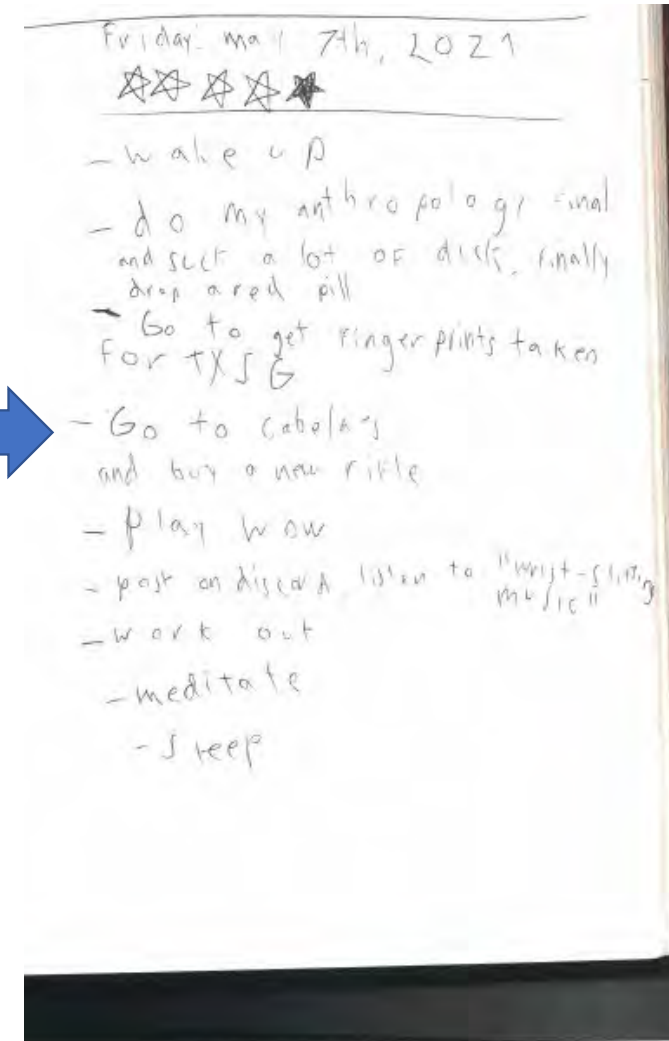 Friday may 7th, 2021
- wake up
- do my anthropology final
and suck a lot of disk, finally
drop a red pill
- Go to get fingerprints taken
For TXSG
- Go to cabela's
and buy a new rifle
- play wow
- post on discord, listen to "wrist-slitting
music"
- work out
- meditate
- sleep